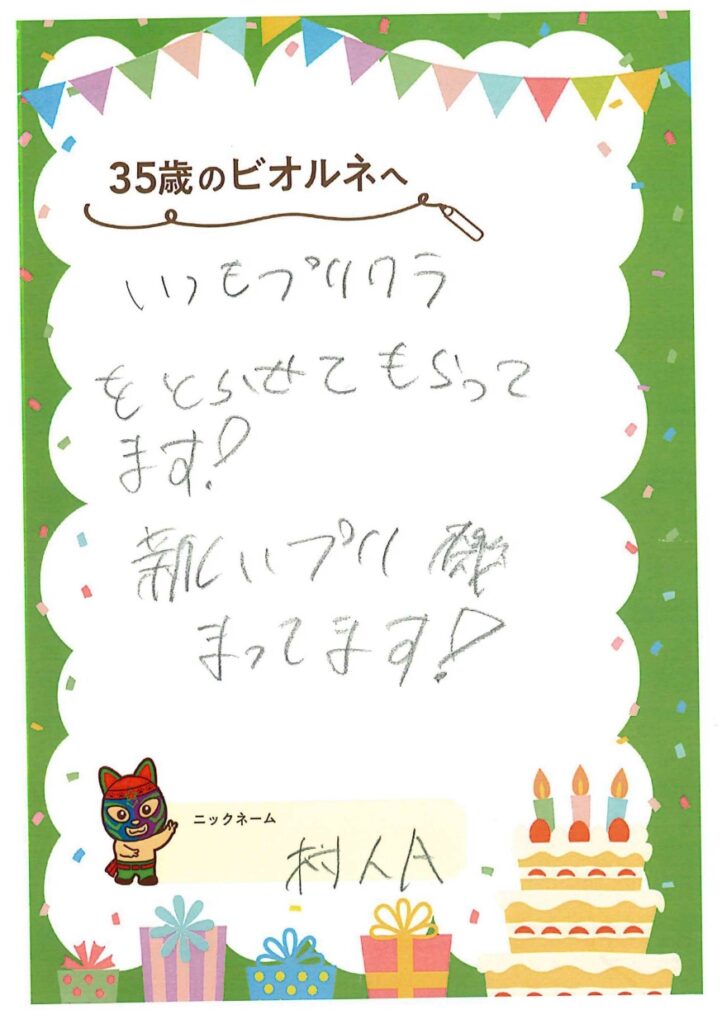 35歳のビオルネへ
いつもプリクラ
をとらせてもらって
ます!
新しいプリ
まってます!
ニックネーム
村人A